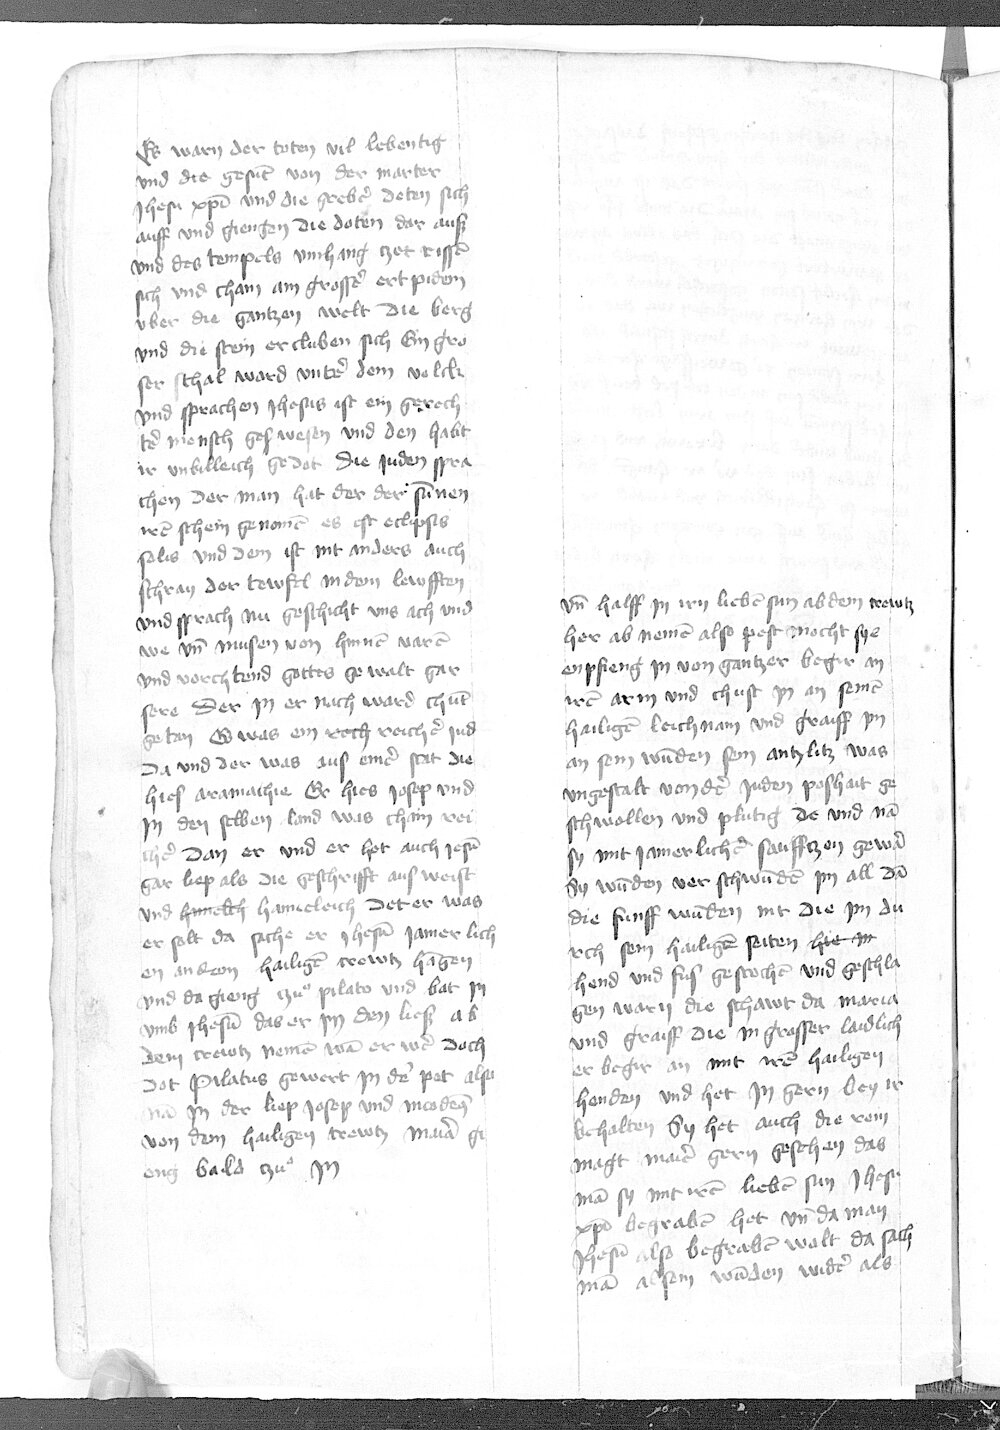 Es warn der toten vil lebentig
vnd die gesūt von der marter
Jhesu xpī vnd die greber̄ deten sich
auff vnd giengen die doten dar auß
vnd des tempels vmhang zet rissē
sich vnd cham ain grosser̄ ert pidem
vber die gantzen welt die berg
vnd die stein ercluben sich Ein gro
ser schal ward vnter̄ dem volck
vnd sprachen Jhesus ist ein gerech
ter̄ mensch geswesen vnd den habt
ir vnbilleich gedot die juden spra
chen der man hat der der sūnen
irē schein genomē es ist eclipsis
solis vnd dem ist nit anders auch
schray der tewfel in dem lewfften
vnd sprach nu geschicht vns ach vnd
we vn̄ musen von hinnē varē
vnd vorchtend gottes gewalt gar
sere Der in er nach ward chūt
getan Es was ein reich reicher̄ jud
da vnd der was aus einer̄ stat die
hies aramathie Er hies Josep vnd
in den selben land was chain rei
cher̄ dan er vnd er het auch jesū
gar liep als die geschrifft aus weist
vnd hamleich det er was
er solt da sache er Jhesū jamerlich
en an dem hailigē crewtz hāgen
vnd da gieng zuͦ pilato vnd bat in
vmb Jhesū das er im den ließ ab
dem crewtz nemē wā er wer̄ doch
dot Pilatus gewert in der̄ pet also
nā in der liep Josep vnd nicodem̄
von dem hailigen crewtz Maria gi
eng bald zuͦ in
vn̄ halff in irn liebē sun ab dem crewtz
her ab nemē also pest mocht sye
enpfieng in von gantzer begir an
irē arm vnd chust in an seinē
hailigē leichnam vnd graiff in
an sein wūden sein antzlitz was
vngestalt von der̄ juden poshait ge
schwollen vnd plutig De vnd nā
sy mit jamerlicher̄ saufftzen gewar̄
Sy wūden verschwūdē im all dā
die funff wūden nit die im du
rch sein hailigē seiten hie in
hend vnd fus gestochē vnd geschla
gen warn die schawt da maria
vnd graiff die in grosser laidlich
er begir an mit irē hailigen
henden vnd het in gern bey ir
behalten Sy het auch die rein
magt mair̄ gern gesehen das
mā sy mit irē liebē sun Jhesu
xpō begrabē het vn̄ da man
Jhesū also begrabē wolt da sach
mā al sein wūden wider̄ als